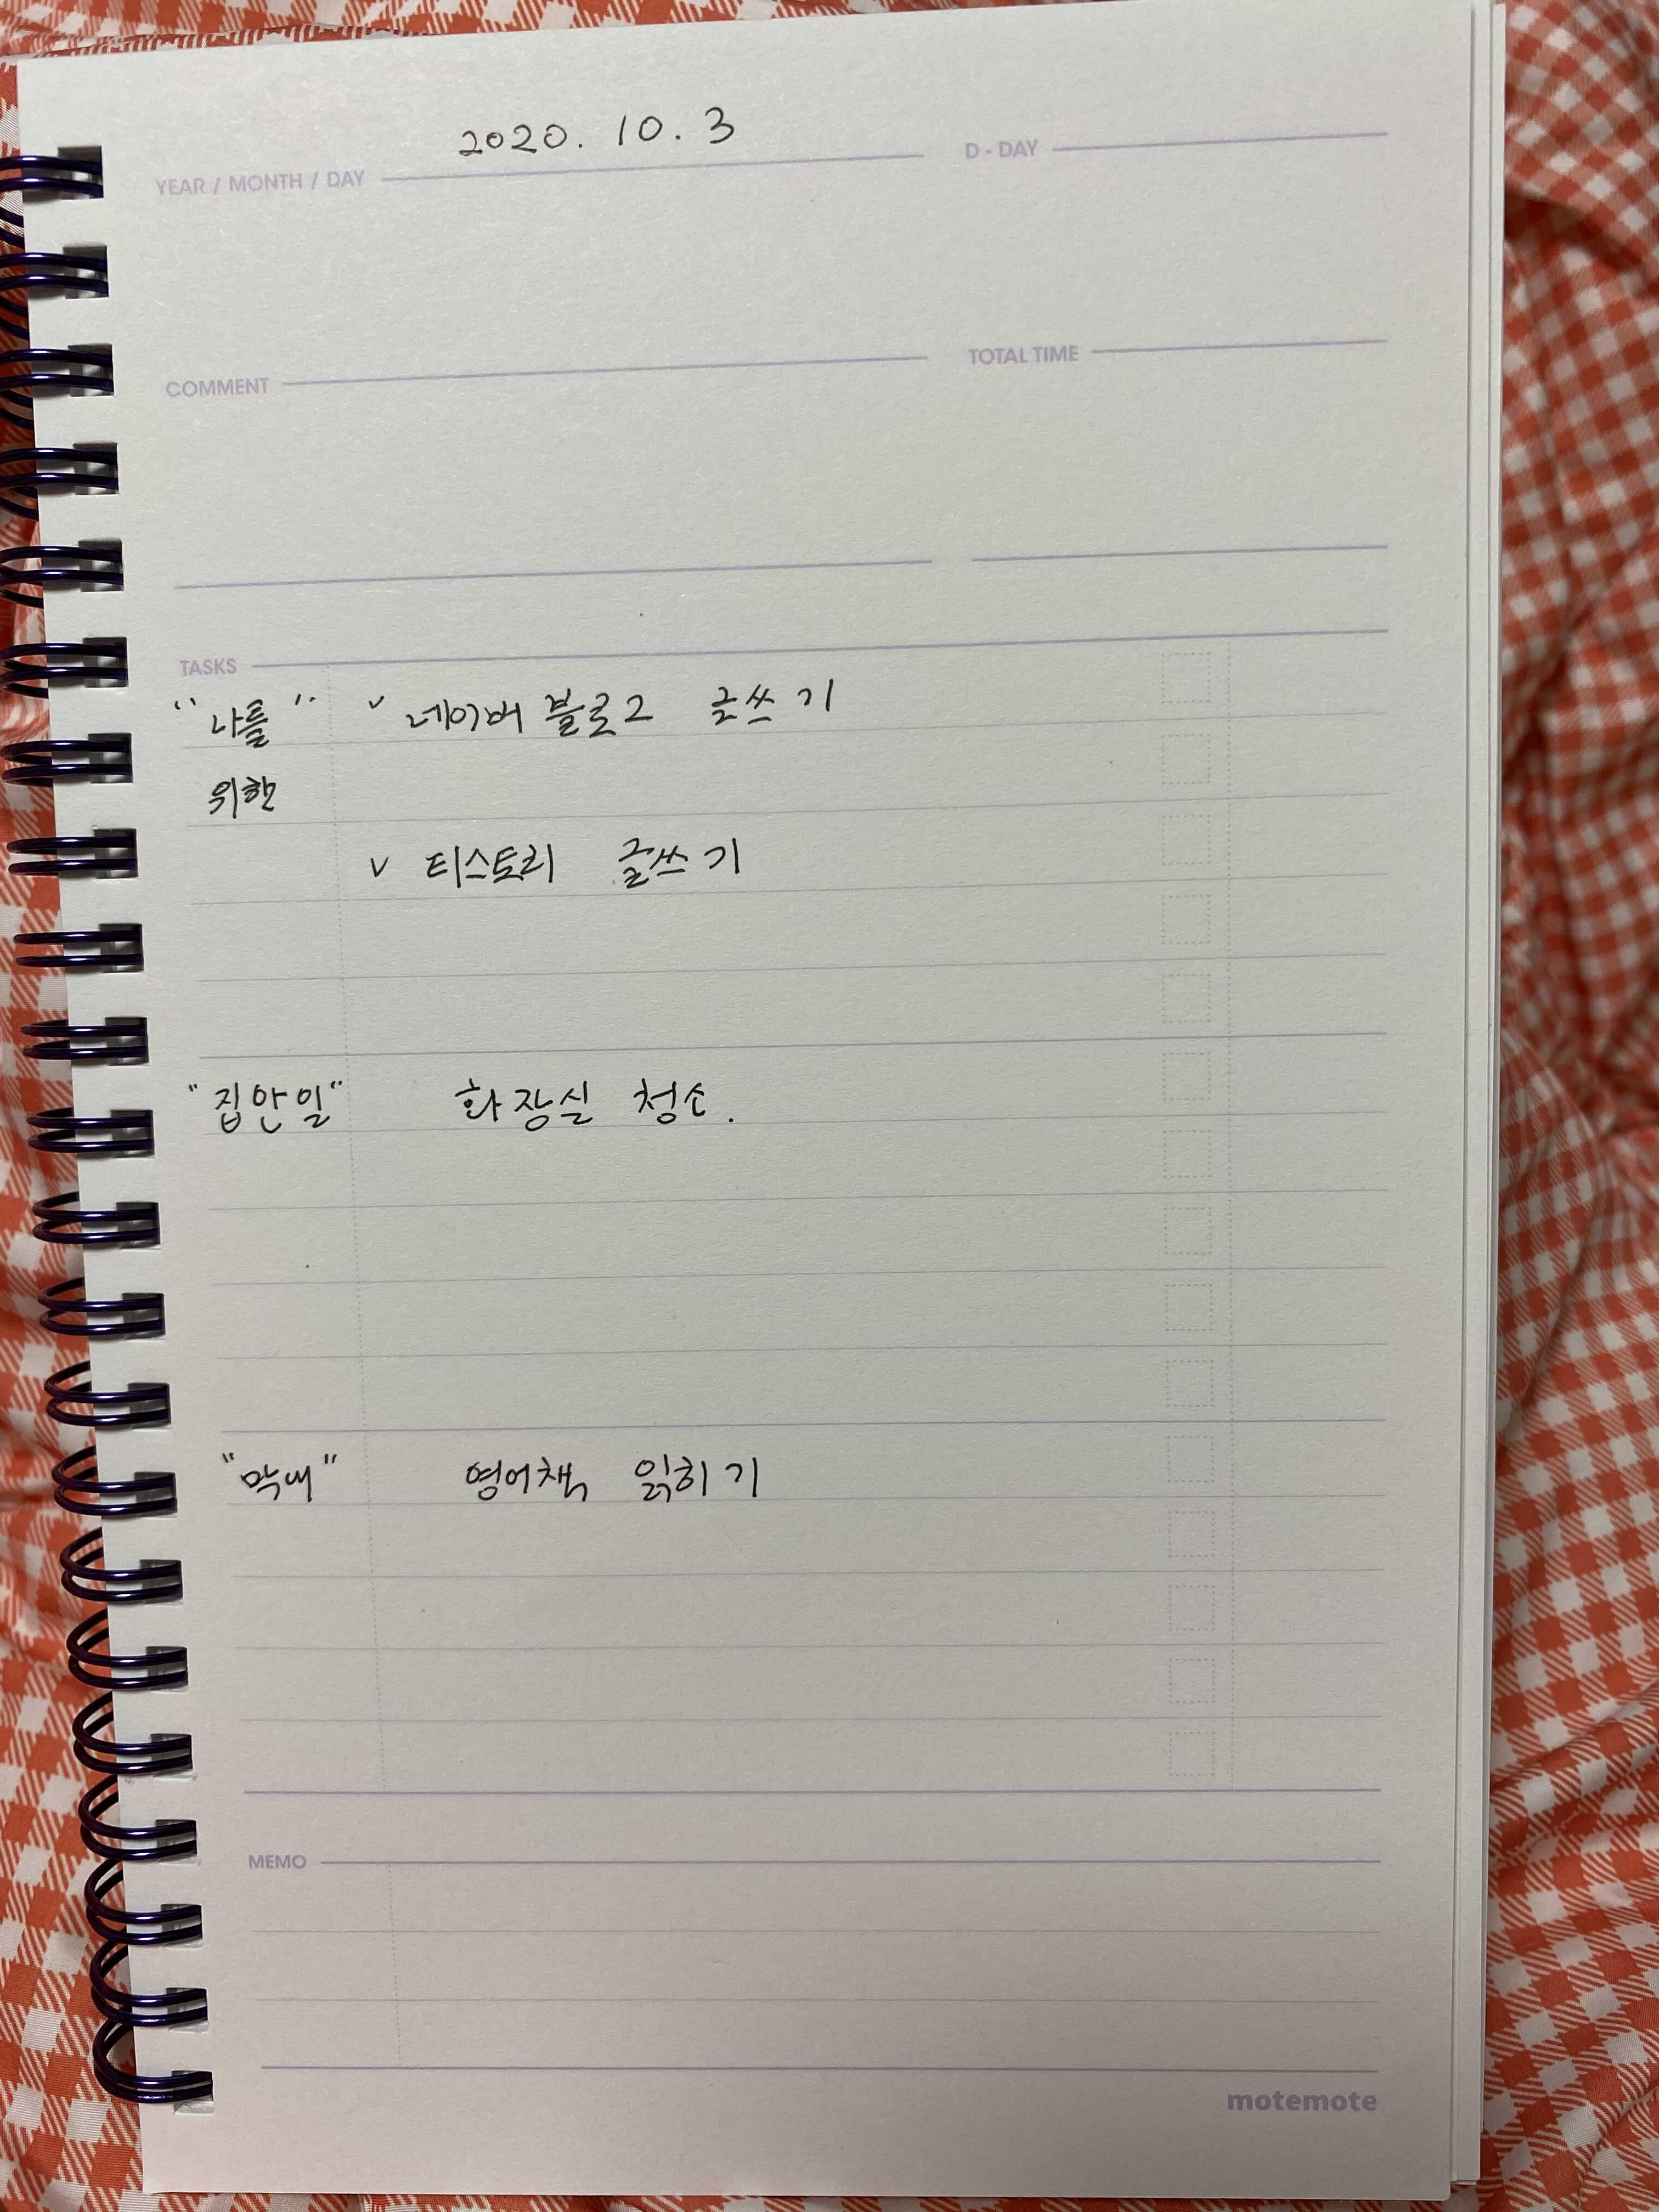 2020. 10. 3
YEAR / MONTH / DAY
D-DAY
COMMENT
TOTAL TIME
TASKS
"나를" v 네이버 블로그 글쓰기
위한
v 티스토리 글쓰기
"집안일" 화장실 청소.
"막내" 영어책 읽히기
MEMO
motemote